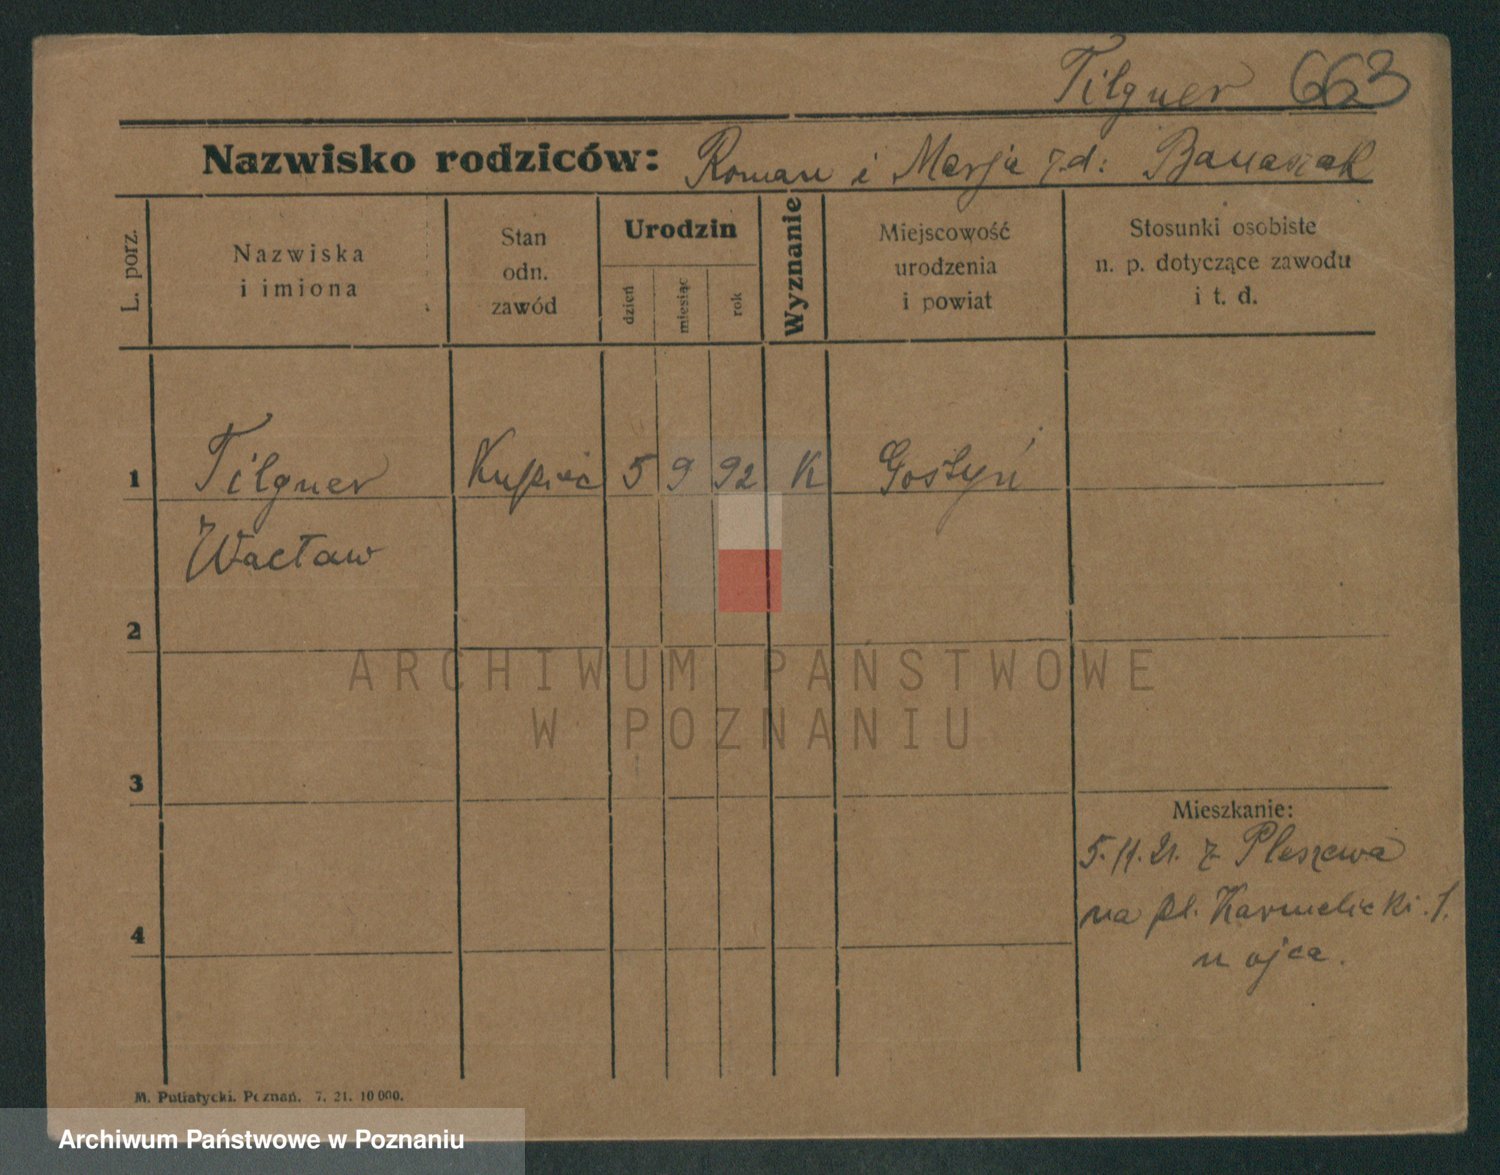 Tilgner 663
Nazwisko rodziców: Roman i Marja z d: Banaszak
L. porz.
Nazwiska
i imiona
Stan
odn.
zawód
Urodzin
dzień
miesiąc
rok
Wyznanie
Miejscowość
urodzenia
i powiat
Stosunki osobiste
n. p. dotyczące zawodu
i t. d.
1 Tilgner Kupiec 5 9 92 K Gostyń
Wacław
2
3
Mieszkanie:
5.11.21. z Pleszewa
na pl. Karmelicki. 1.
4
u ojca.
M. Putiatycki. Poznań. 7. 21. 10 000.
ARCHIWUM PAŃSTWOWE
W POZNANIU
Archiwum Państwowe w Poznaniu